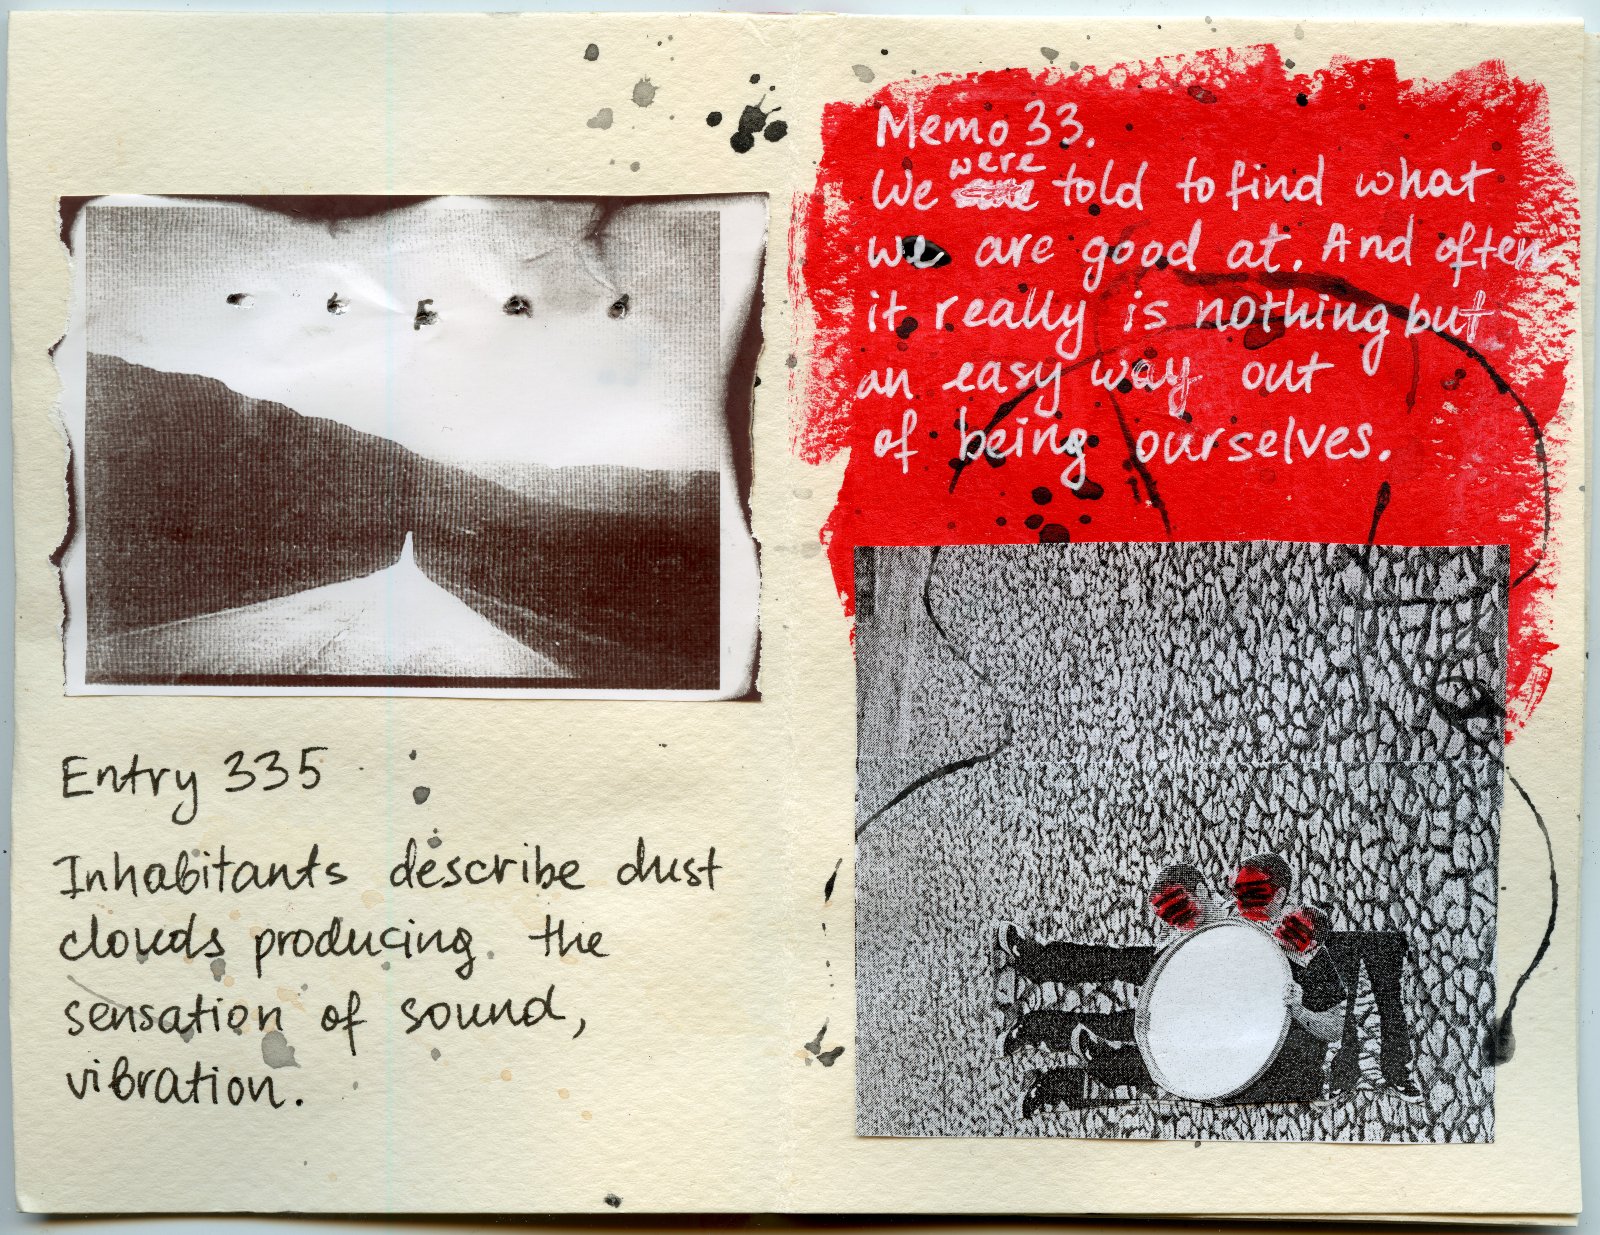 Entry 335
Inhabitants describe dust
clouds producing the
sensation of sound,
vibration.
Memo 33.
We were told to find what
we are good at. And often
it really is nothing but
an easy way out
of being ourselves.